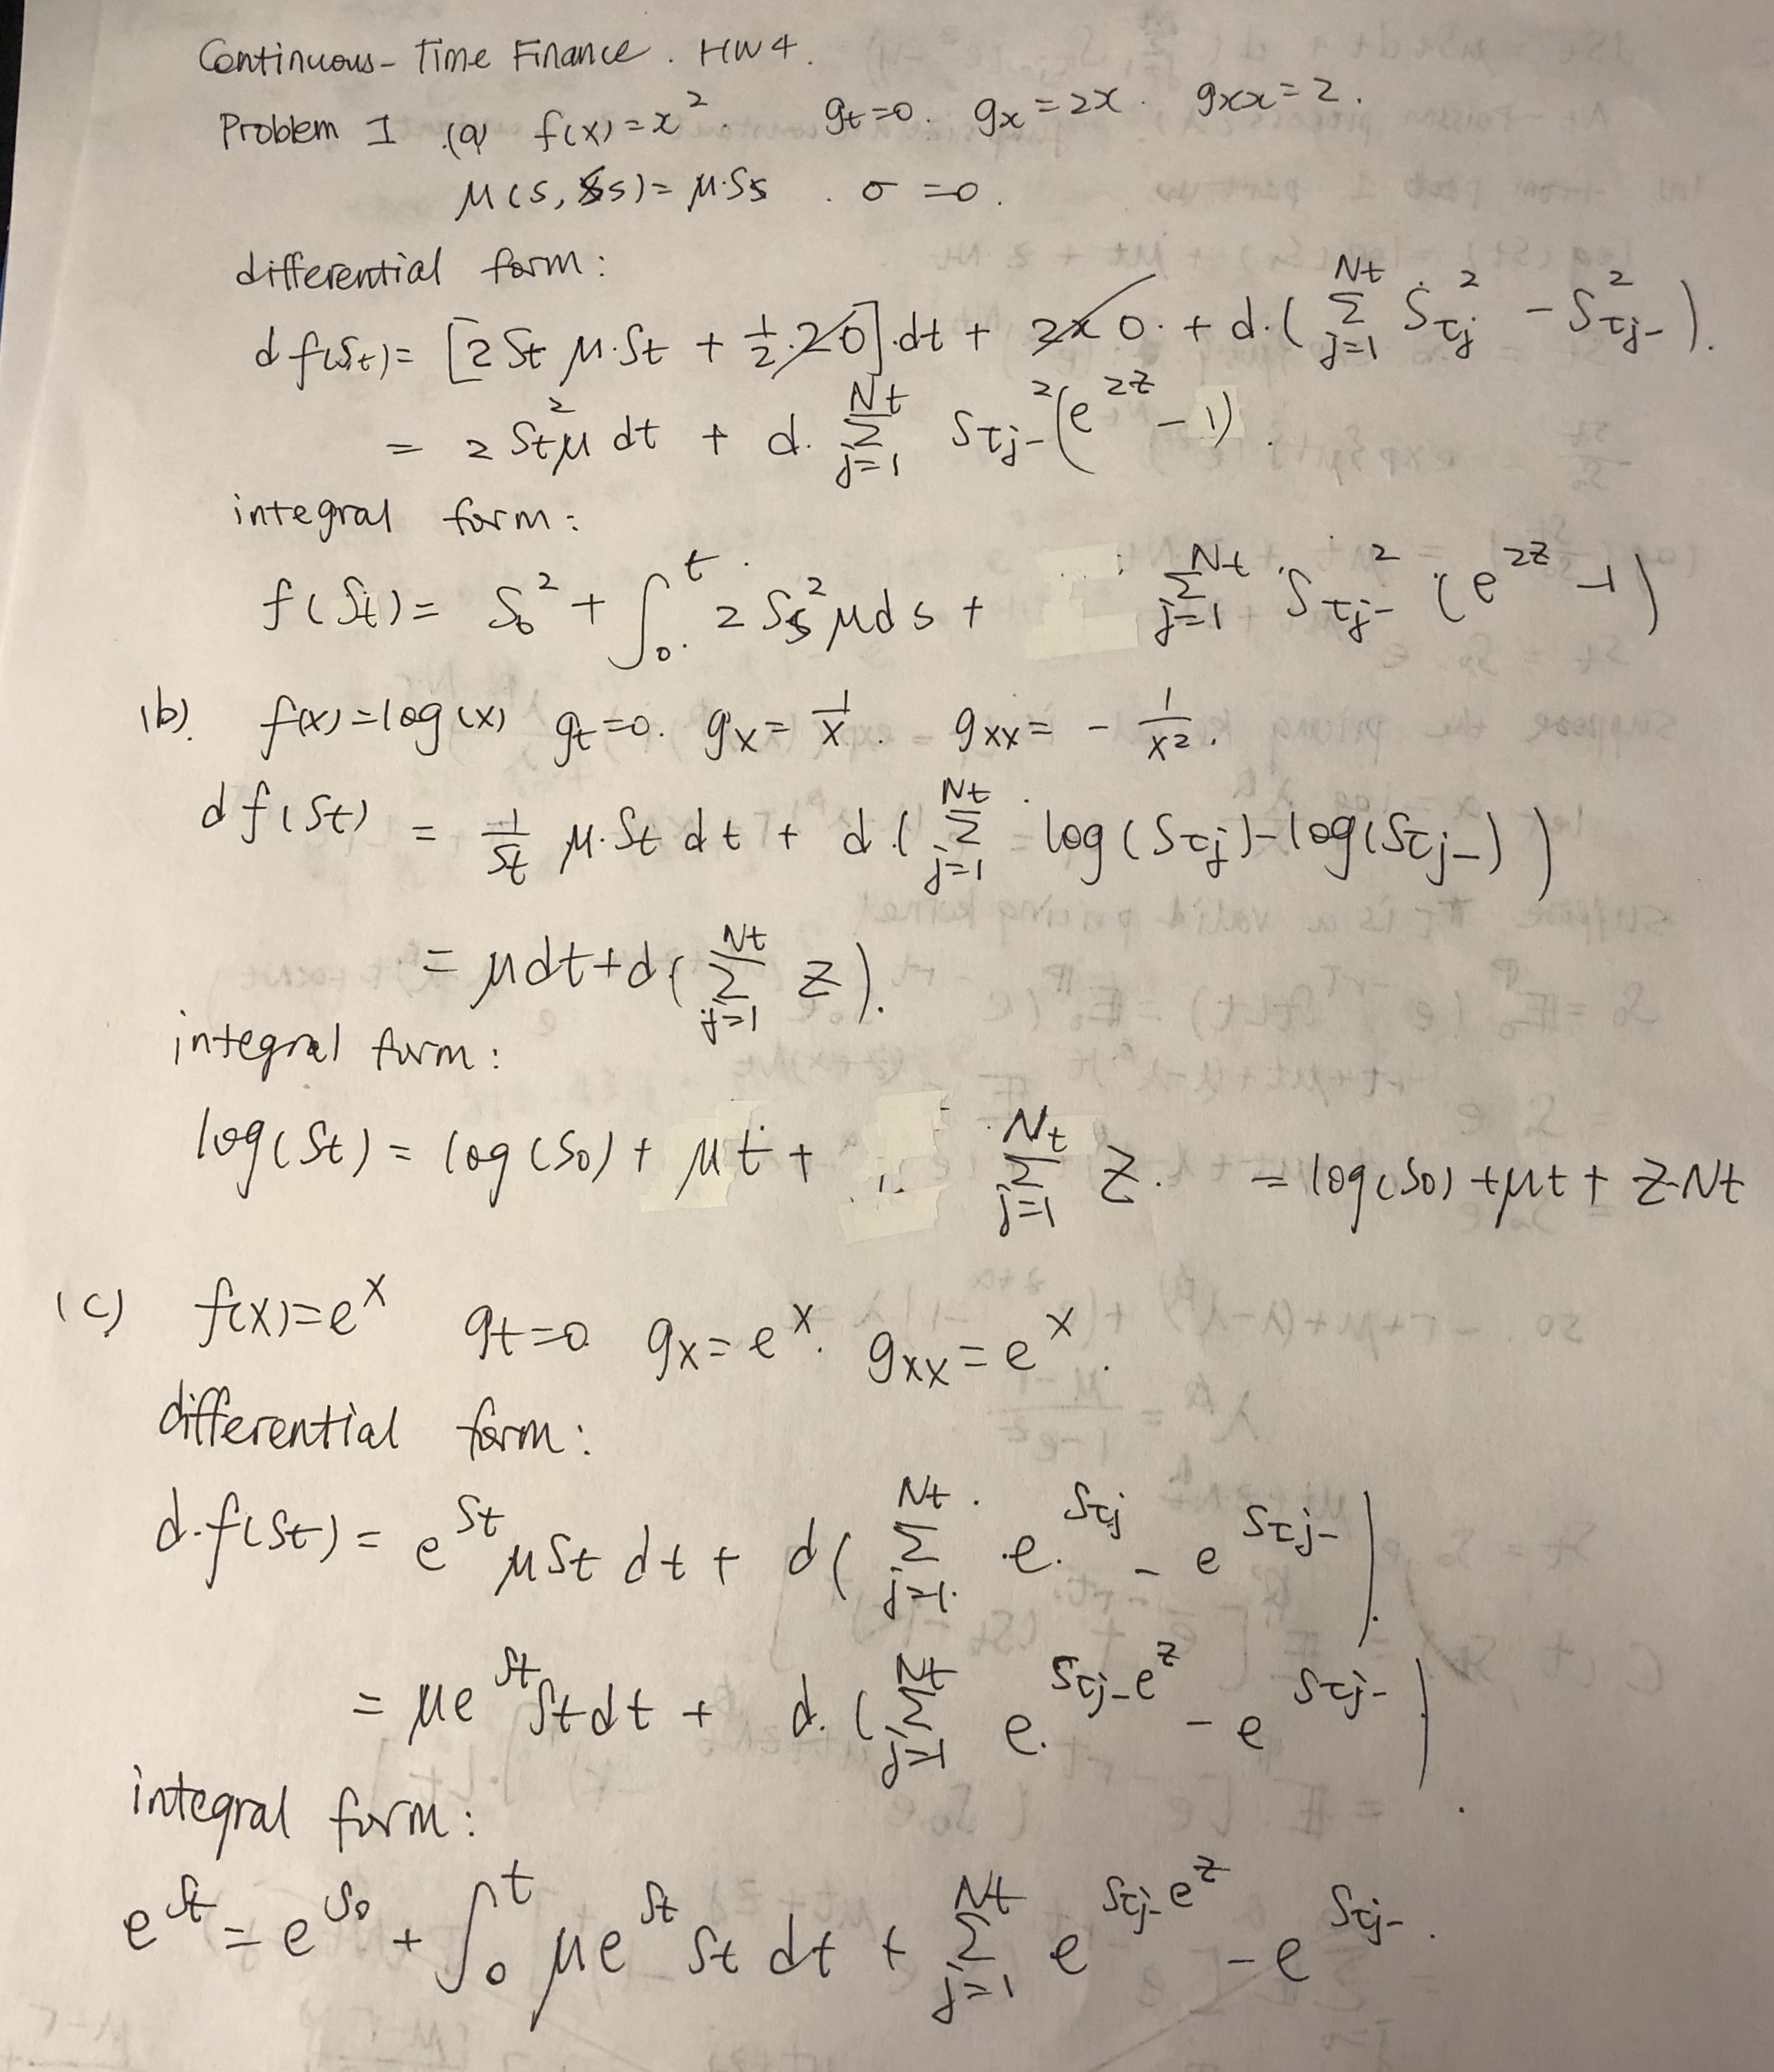 Continuous-Time Finance. HW4.
Problem 1 (a) f(x)=x². g_t=0. g_x=2x. g_xx=2.
μ(s, S_s)=μ·S_s. σ=0.
differential form:
d f(S_t)= [2S_t μ·S_t + ½·2·0]·dt + 2x0· + d·(∑_{j=1}^{N_t} S_{τj}² − S_{τj-}²).
= 2S_t²μ dt + d·∑_{j=1}^{N_t} S_{τj-}²(e^{2z} − 1).
integral form:
f(S_t)= S_0² + ∫_0^t 2S_s²μds + ∑_{j=1}^{N_t} S_{τj-}² (e^{2z} −1)
(b). f(x)=log(x) g_t=0. g_x=1/x. g_xx= −1/x².
d f(S_t) = 1/S_t μ·S_t dt + d·(∑_{j=1}^{N_t} log(S_{τj})−log(S_{τj-}))
= μdt+d(∑_{j=1}^{N_t} z).
integral form:
log(S_t)= log(S_0)+ μt + ∑_{j=1}^{N_t} z. = log(S_0)+μt+ z·N_t
(c) f(x)=e^x g_t=0 g_x=e^x. g_xx=e^x.
differential form:
d·f(S_t)= e^{S_t} μS_t dt + d(∑_{j=1}^{N_t} e^{S_{τj}} − e^{S_{τj-}}).
= μe^{S_t}S_t dt + d·(∑_{j=1}^{N_t} e^{S_{τj-}e^z} − e^{S_{τj-}})
integral form:
e^{S_t}= e^{S_0} + ∫_0^t μe^{S_t} S_t dt + ∑_{j=1}^{N_t} e^{S_{τj-}e^z} − e^{S_{τj-}}.